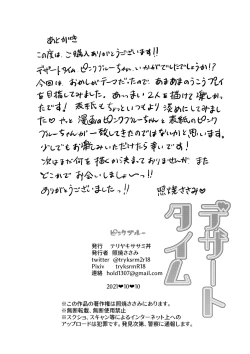 あとがき
この度は、ご購入ありがとうございます!!
デザートタイム ピンクブルーちゃん、いかがでしたでしょうか!?
今回は、おかしがテーマだったので、あまあまのうこうプレイ
を目指してみました。あっまい2人を描けて楽しかっ
たです! 表紙もちょっといつもより淡めにしてみまし
た♡ やっと漫画はピンクブルーちゃんと表紙のピンク
ブルーちゃんが一致してきたのではないかと思います。
少しでもお楽しみいただけたら幸いです!
次はまだ何を描くか決まっておりませんが、また
どこかでお会いしましょ〜っ!!
ありがとうございましたっ!! 照焼ささみ♡
デザート
タイム
ピンクブルー
発行 テリヤキササミ丼
発行者 照焼ささみ
twitter @tryksrm2r18
Pixiv tryksrmR18
連絡 hold1307@gmail.com
2021♥10♥10
※この作品の著作権は照焼ささみにおります。
※無断転載、無断使用禁止
※スクショ、スキャン等によるインターネット上への
アップロードは犯罪です。発見次第、警察に通報します。